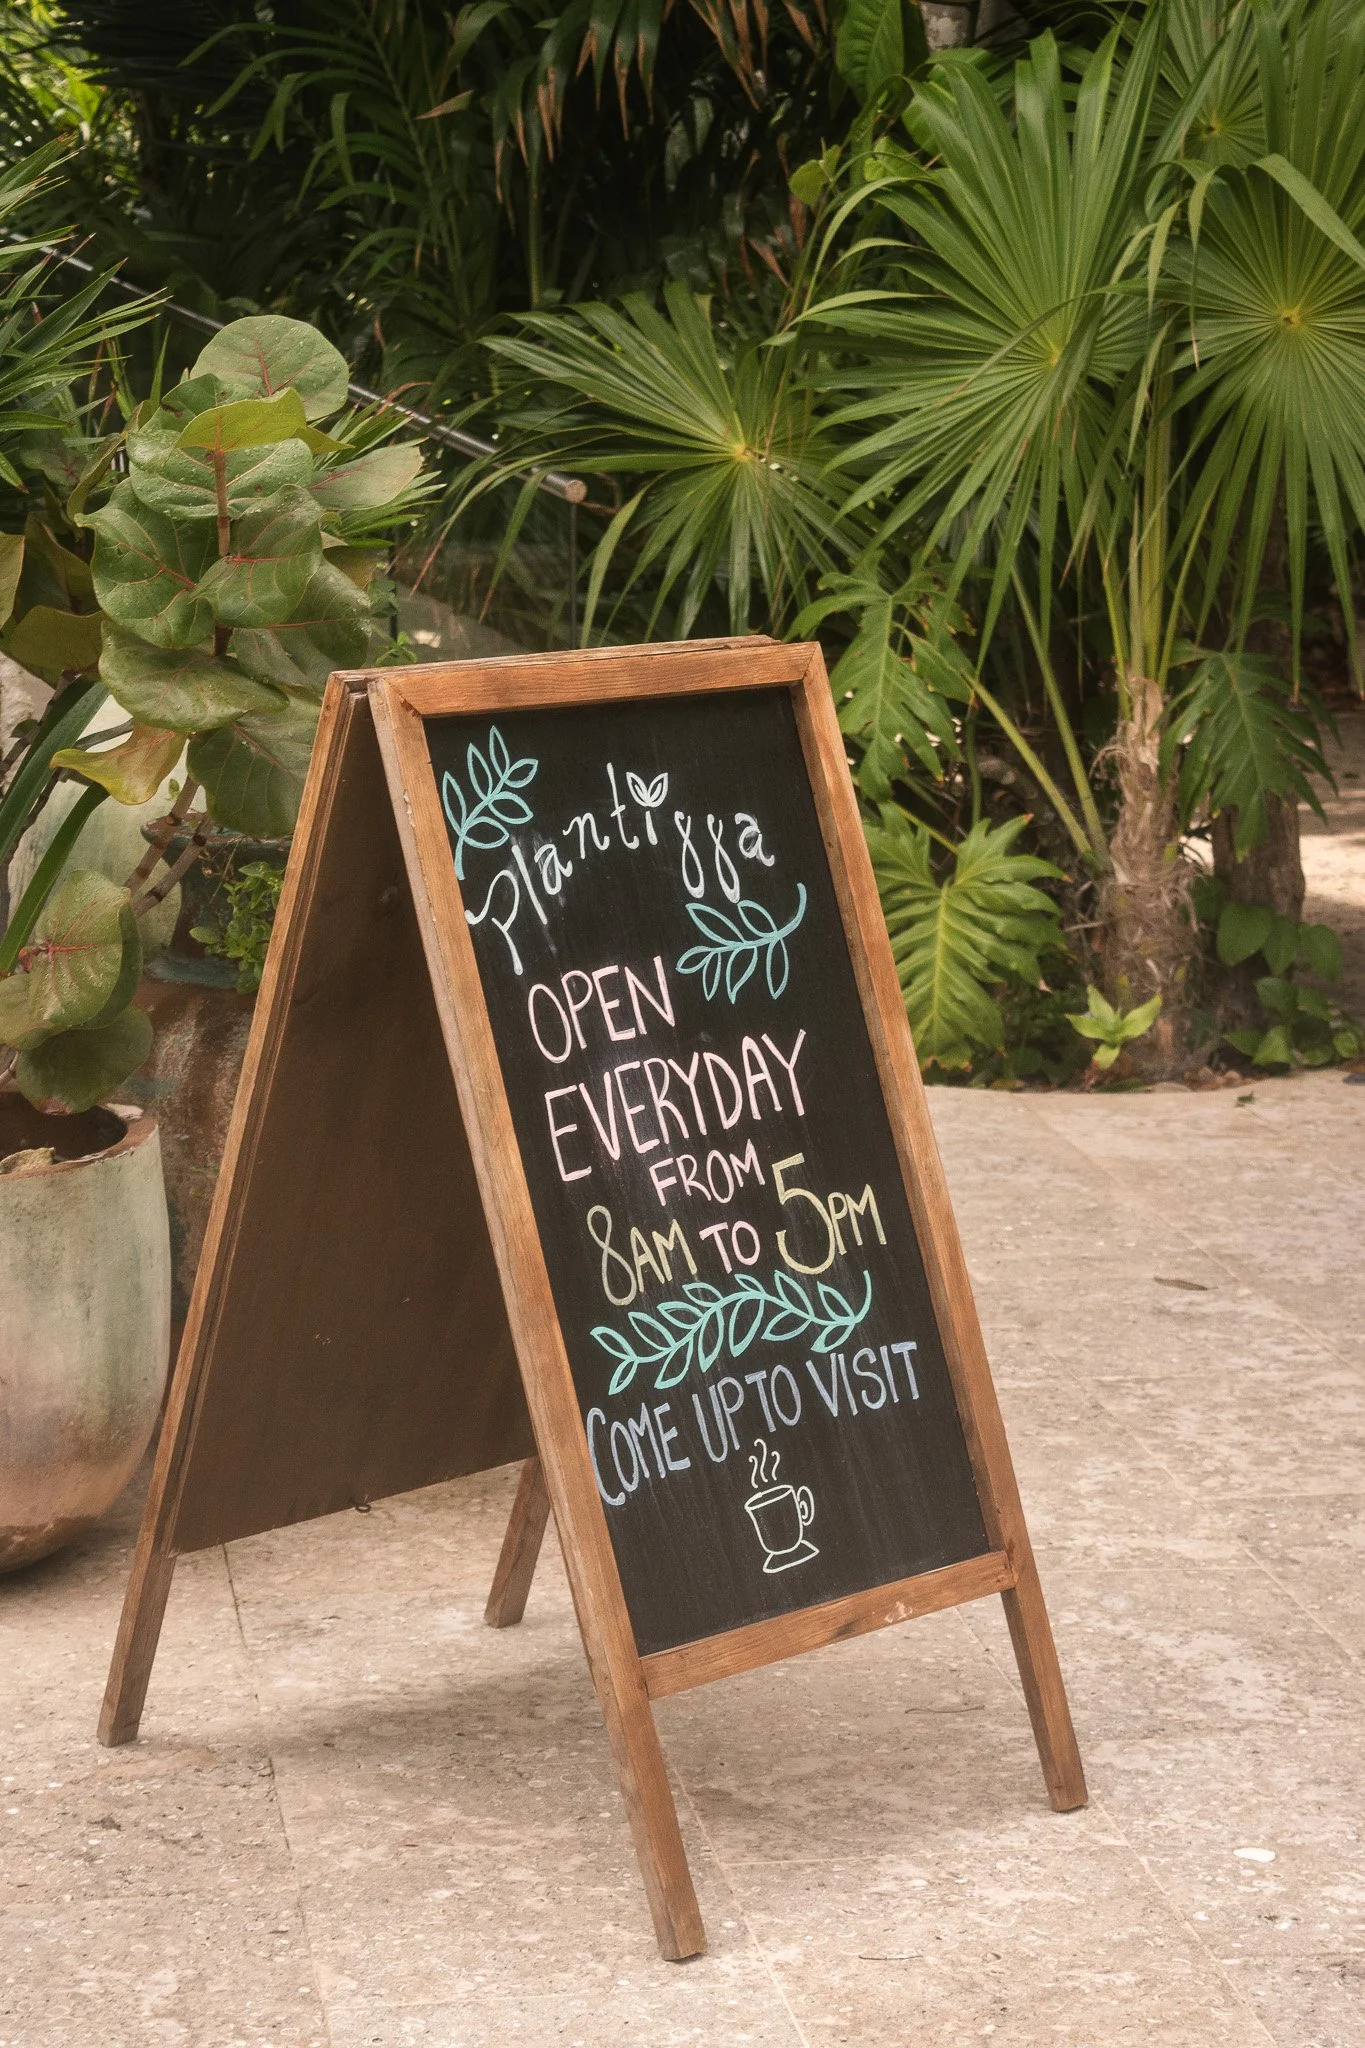 plantigga
OPEN
EVERYDAY
FROM
8AM TO 5PM
COME UP TO VISIT